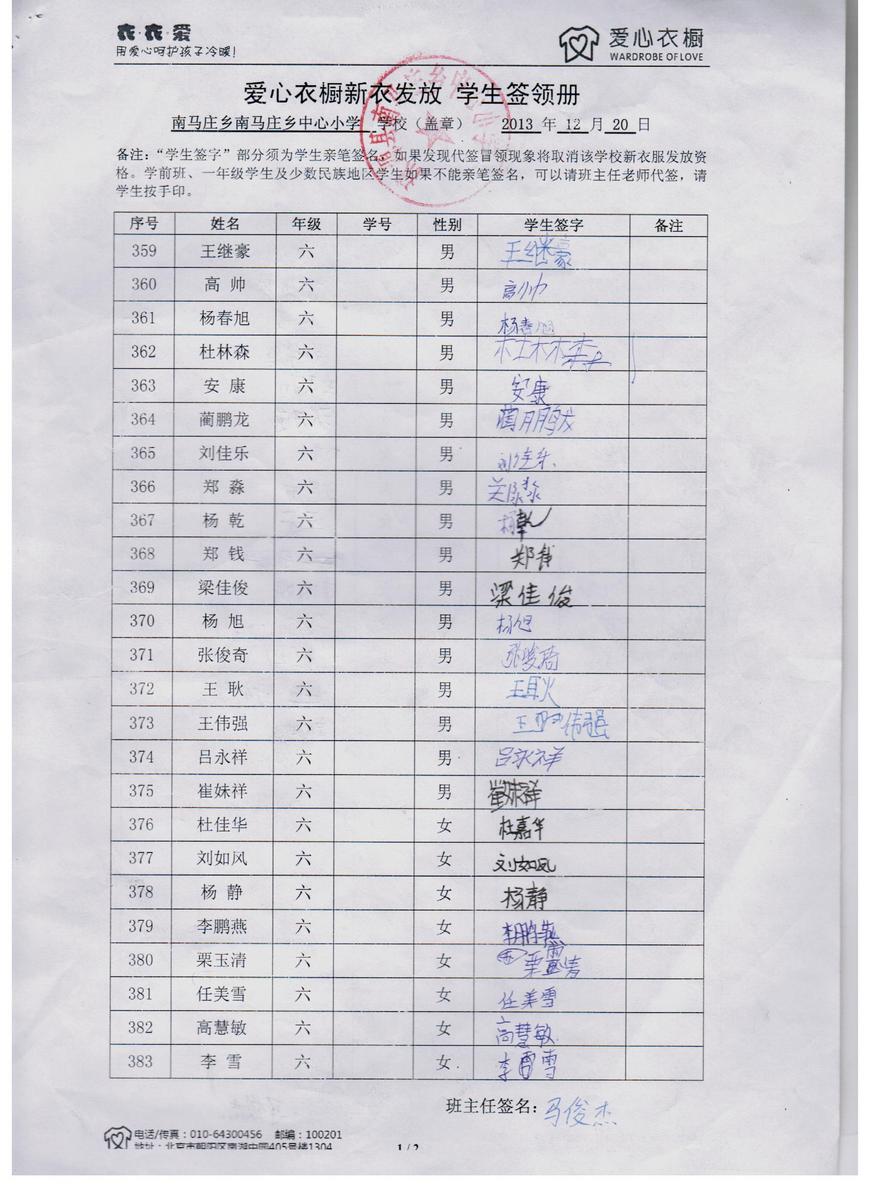 衣·衣·爱
用爱心呵护孩子冷暖!
爱心衣橱
WARDROBE OF LOVE
爱心衣橱新衣发放 学生签领册
南马庄乡南马庄乡中心小学 学校（盖章） 2013 年 12 月 20 日
备注：“学生签字”部分须为学生亲笔签名，如果发现代签冒领现象将取消该学校新衣服发放资
格。学前班、一年级学生及少数民族地区学生如果不能亲笔签名，可以请班主任老师代签，请
学生按手印。
序号 姓名 年级 学号 性别 学生签字 备注
359 王继豪 六 男 王继豪
360 高 帅 六 男 高帅
361 杨春旭 六 男 杨春旭
362 杜林森 六 男 杜林森
363 安 康 六 男 安康
364 蔺鹏龙 六 男 蔺鹏龙
365 刘佳乐 六 男 刘佳乐
366 郑 淼 六 男 郑淼
367 杨 乾 六 男 杨乾
368 郑 钱 六 男 郑钱
369 梁佳俊 六 男 梁佳俊
370 杨 旭 六 男 杨旭
371 张俊奇 六 男 张俊奇
372 王 耿 六 男 王耿
373 王伟强 六 男 王伟强
374 吕永祥 六 男 吕永祥
375 崔妹祥 六 男 崔妹祥
376 杜佳华 六 女 杜嘉华
377 刘如风 六 女 刘如风
378 杨 静 六 女 杨静
379 李鹏燕 六 女 李鹏燕
380 栗玉清 六 女 栗清
381 任美雪 六 女 任美雪
382 高慧敏 六 女 高慧敏
383 李 雪 六 女 李雪
班主任签名：马俊杰
电话/传真：010-64300456 邮编：100201
地址：北京市朝阳区南湖中园405号楼1304
1 / 2